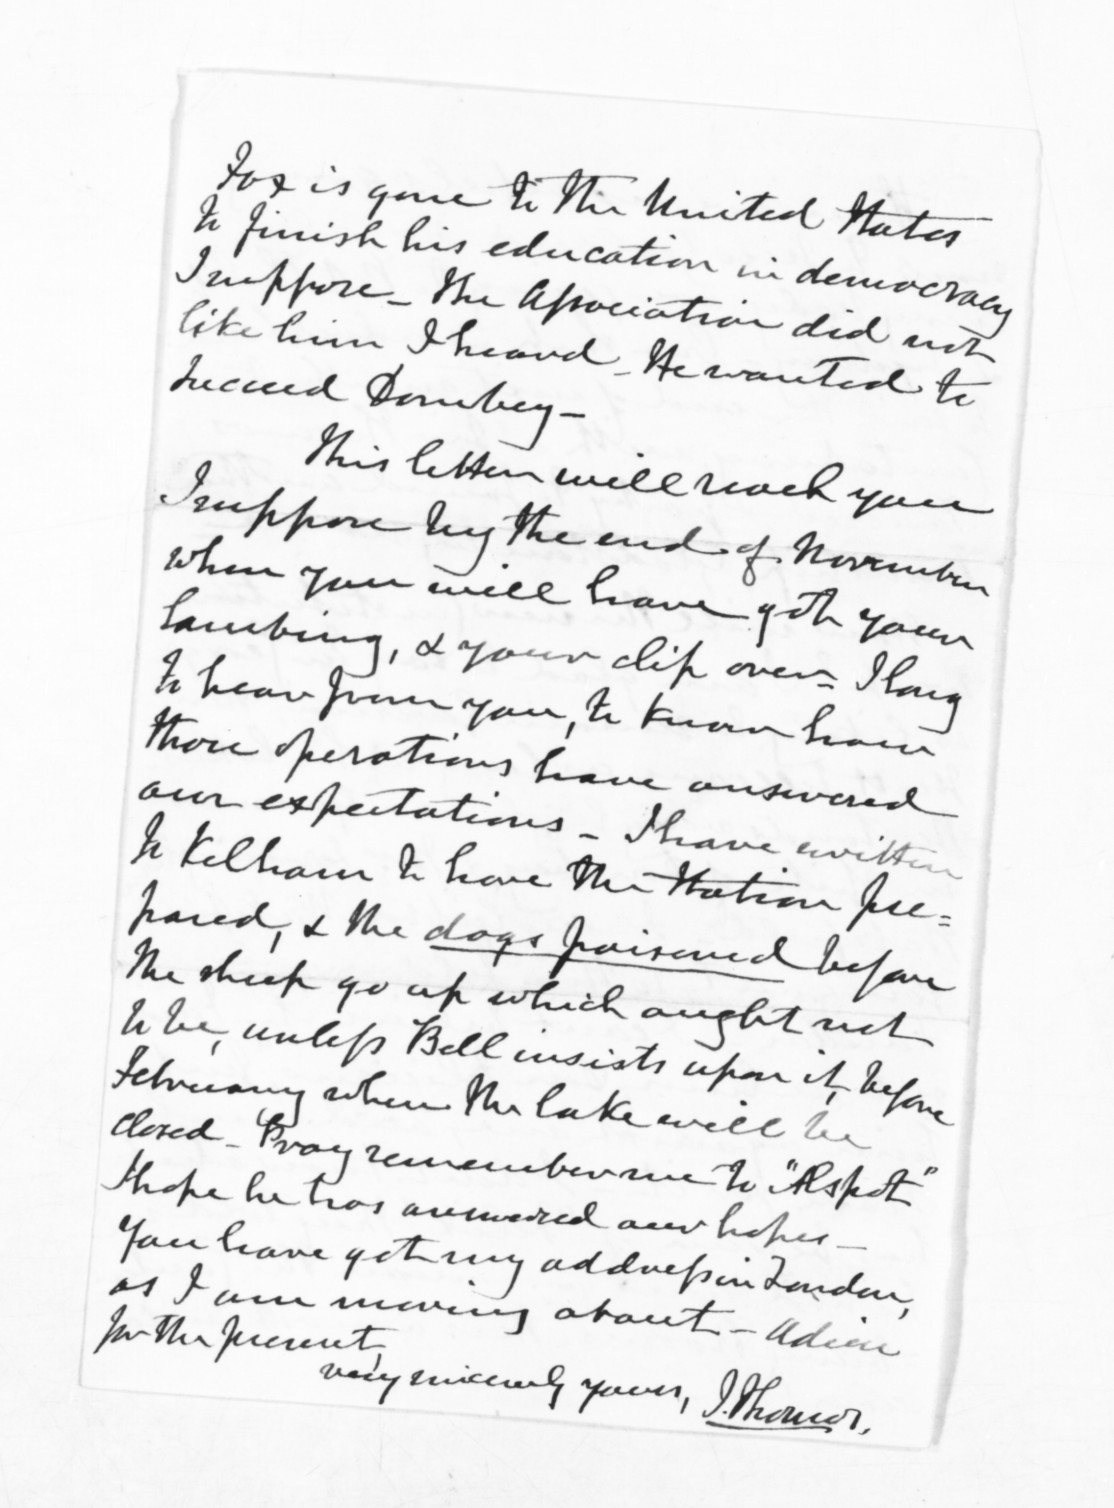 Fox is gone to the United States
to finish his education in democracy
I suppose – The Association did not
like him I heard – He wanted to
succeed Dombey –
This letter will reach you
I suppose by the end of November
when you will have got your
lambing, & your clip over – I long
to hear from you, to know how
those operations have answered
our expectations – I have written
to Kelham to have the Station pre=
pared, & the dogs poisoned before
the sheep go up which ought not
to be, unless Bell insists upon it, before
February when the lake will be
closed – Pray remember me to
I hope he has answered our hopes –
You have got my address in London,
as I am moving about – Adieu
for the present,
very sincerely yours, J. Thomas.